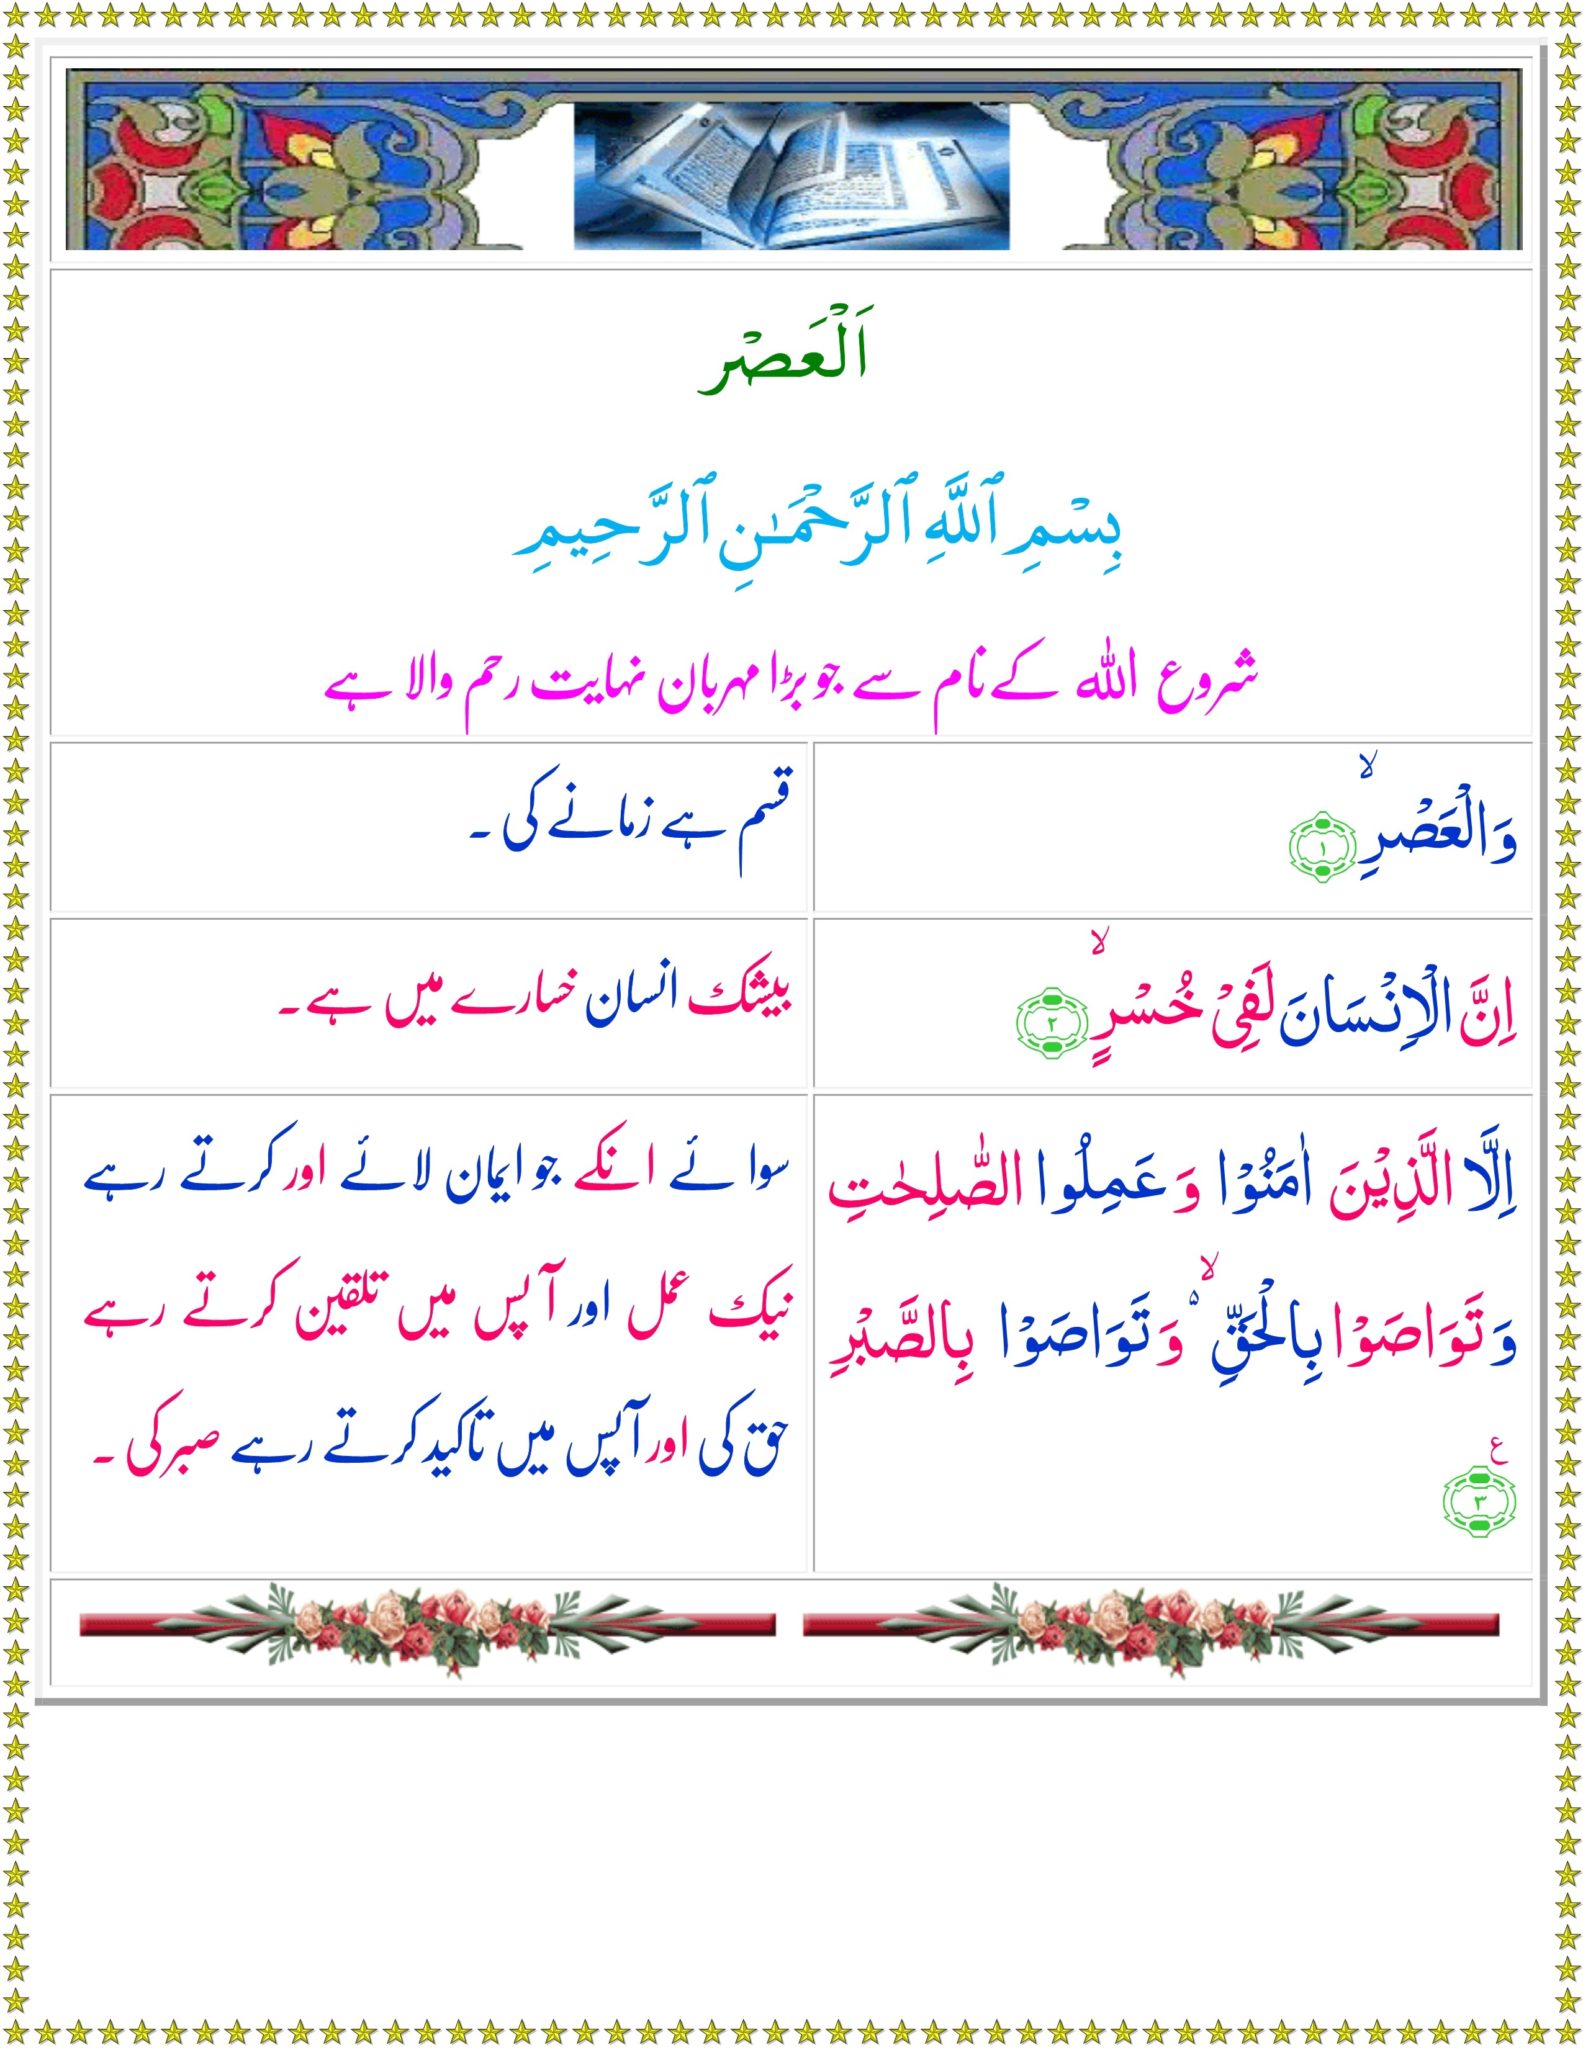 اَلْعَصْر
بِسْمِ ٱللَّهِ ٱلرَّحْمَـٰنِ ٱلرَّحِيمِ
شروع اللہ کے نام سے جو بڑا مہربان نہایت رحم والا ہے
وَالْعَصْرِ ۙ ﴿١﴾
قسم ہے زمانے کی ۔
اِنَّ الْاِنْسَانَ لَفِیْ خُسْرٍ ۙ ﴿٢﴾
بیشک انسان خسارے میں ہے ۔
اِلَّا الَّذِیْنَ اٰمَنُوْا وَ عَمِلُوا الصّٰلِحٰتِ
وَ تَوَاصَوْا بِالْحَقِّ ۙ۬ وَ تَوَاصَوْا بِالصَّبْرِ
ع
﴿٣﴾
سوائے انکے جو ایمان لائے اور کرتے رہے
نیک عمل اور آپس میں تلقین کرتے رہے
حق کی اور آپس میں تاکید کرتے رہے صبر کی ۔